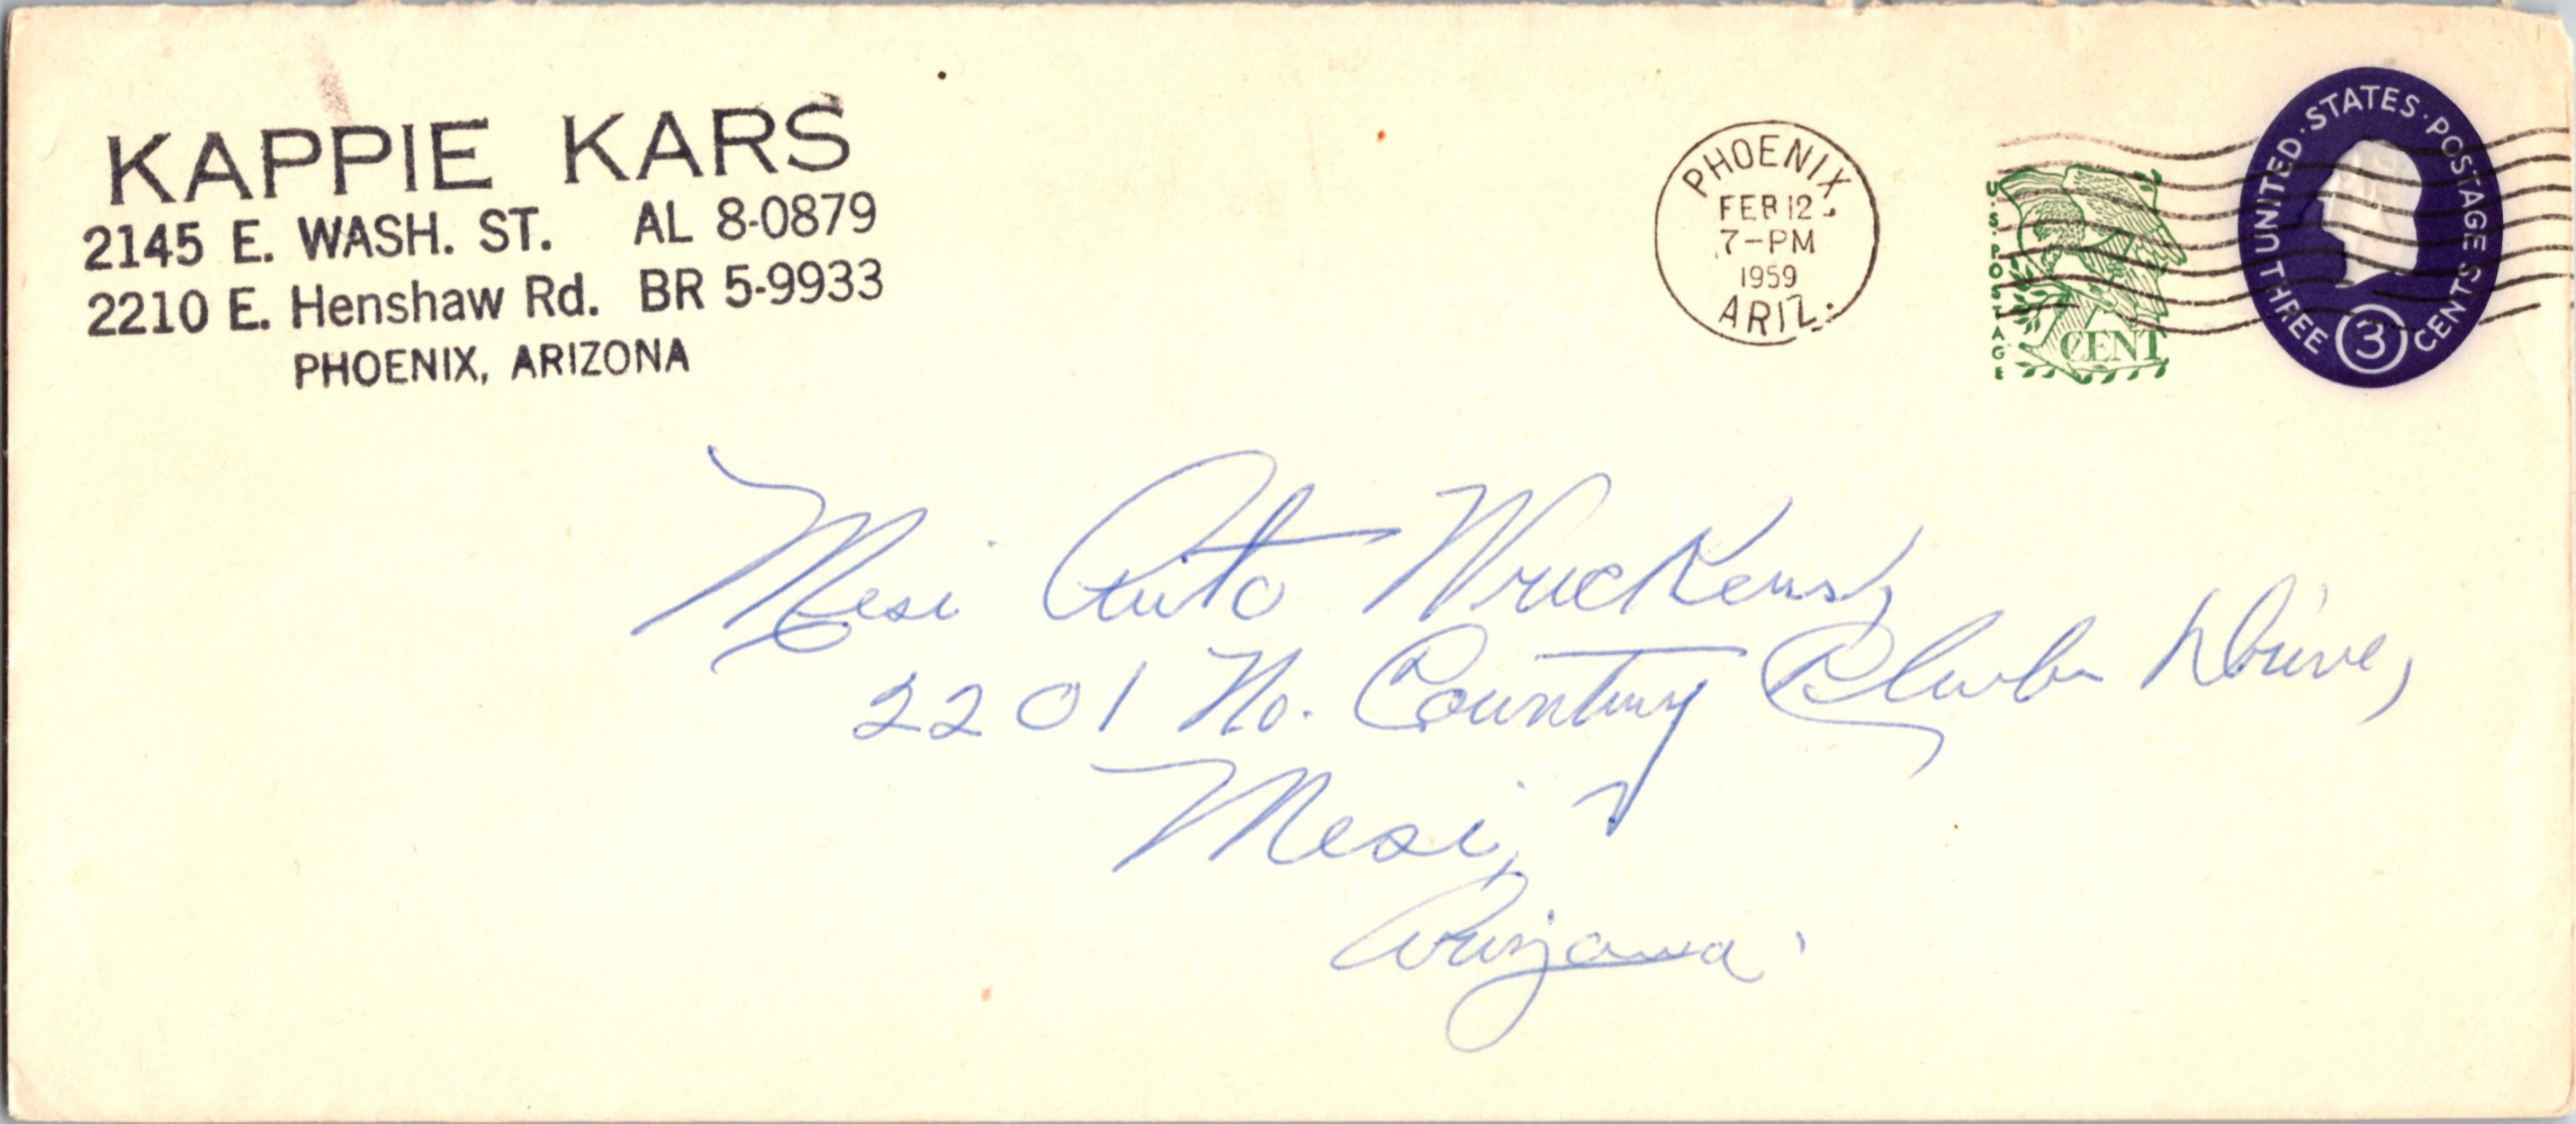 KAPPIE KARS
2145 E. WASH. ST. AL 8-0879
2210 E. Henshaw Rd. BR 5-9933
PHOENIX, ARIZONA
PHOENIX
FEB 12
7-PM
1959
ARIZ.
U.S. POSTAGE
1 CENT
UNITED·STATES·POSTAGE
THREE 3 CENTS
Mesi Auto Wruckers,
2201 No. Country Club Drive,
Mesi,
Arizona.